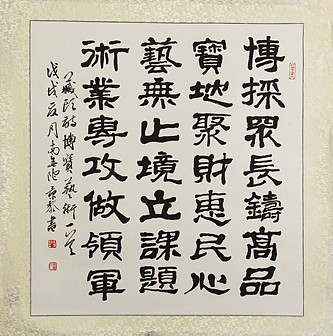 博採眾長鑄高品
寶地聚財惠民心
藝無止境立課題
術業專攻做領軍
藏頭詩博寶藝術一首
戊戌夏月